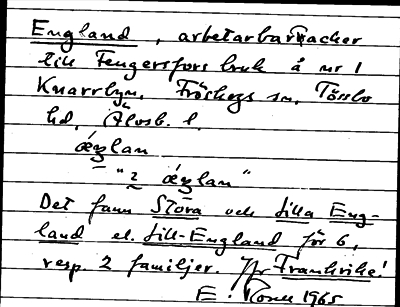 England, arbetarbaracker
till Fengersfors bruk å nr 1
Knarrbyn, Fröskogs sn, Tössbo
hd, Älvsb. l.
æŋlan
– " 2 æŋlan "
Det fanns Stora och Lilla Eng-
land el. Lill-England för 6,
resp. 2 familjer. Jfr Frankrike!
E. 1965